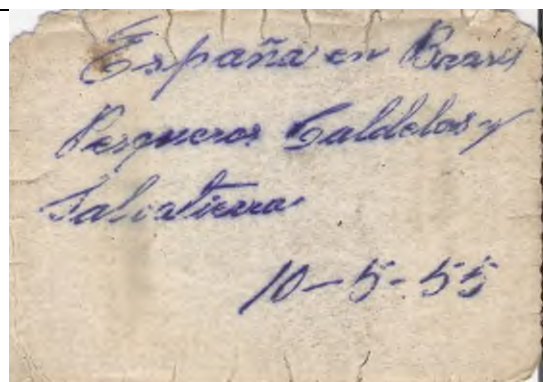 España en
Pesqueros Caldelas y
Salvatierra
10-5-55